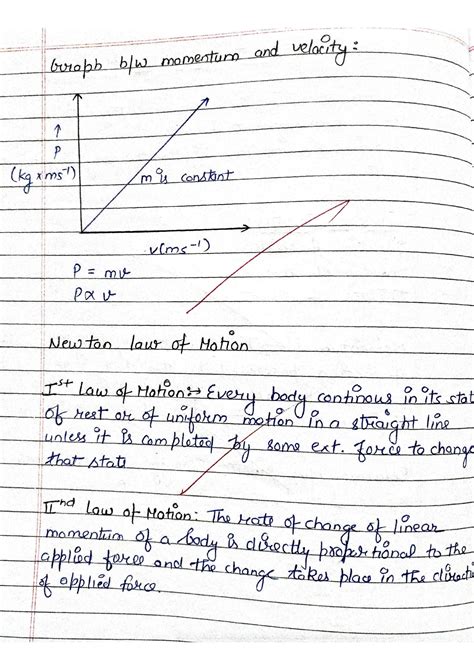 Graph b/w momentum and velocity:
↑
P
(kg x ms⁻¹)
m is constant
v(ms⁻¹)
P = mv
P ∝ v
Newton law of Motion
Iˢᵗ Law of Motion:→ Every body continous in its stat
of rest or of uniform motion in a straight line
unless it is completed by some ext. force to change
that stati
IIⁿᵈ Law of Motion: The rate of change of linear
momentum of a body is directly proportional to the
applied force and the change takes place in the directi
of applied force.